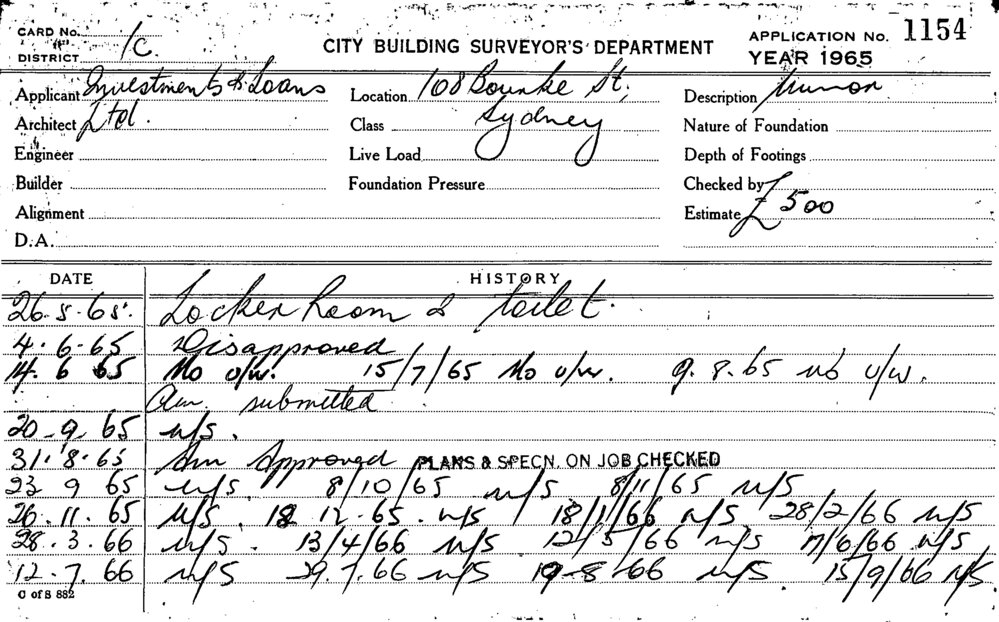 CARD No. 1C.
DISTRICT
CITY BUILDING SURVEYOR'S DEPARTMENT
APPLICATION No. 1154
YEAR 1965
Applicant Investments & Loans
Location 108 Bourke St,
Description Minor
Architect Ltd.
Class Sydney
Nature of Foundation
Engineer
Live Load
Depth of Footings
Builder
Foundation Pressure
Checked by
Alignment
Estimate £500
D.A.
DATE HISTORY
26.5.65. Locker Room & toilet.
4.6.65 Disapproved
14.6 65 No o/w. 15/7/65 No o/w. 9.8.65 no o/w.
Am. submitted
20.9.65 n/s.
31.8.65 Am Approved PLANS & SPECN. ON JOB CHECKED
23 9 65 n/s 8/10/65 n/s 8/11/65 n/s
26.11.65 n/s. 12.65. n/s 18/1/66 n/s 28/2/66 n/s
28.3.66 n/s. 13/4/66 n/s 12/5/66 n/s 17/6/66 n/s
12.7.66 n/s 29.7.66 n/s 19-8-66 n/s. 15/9/66 n/s.
C of S 882